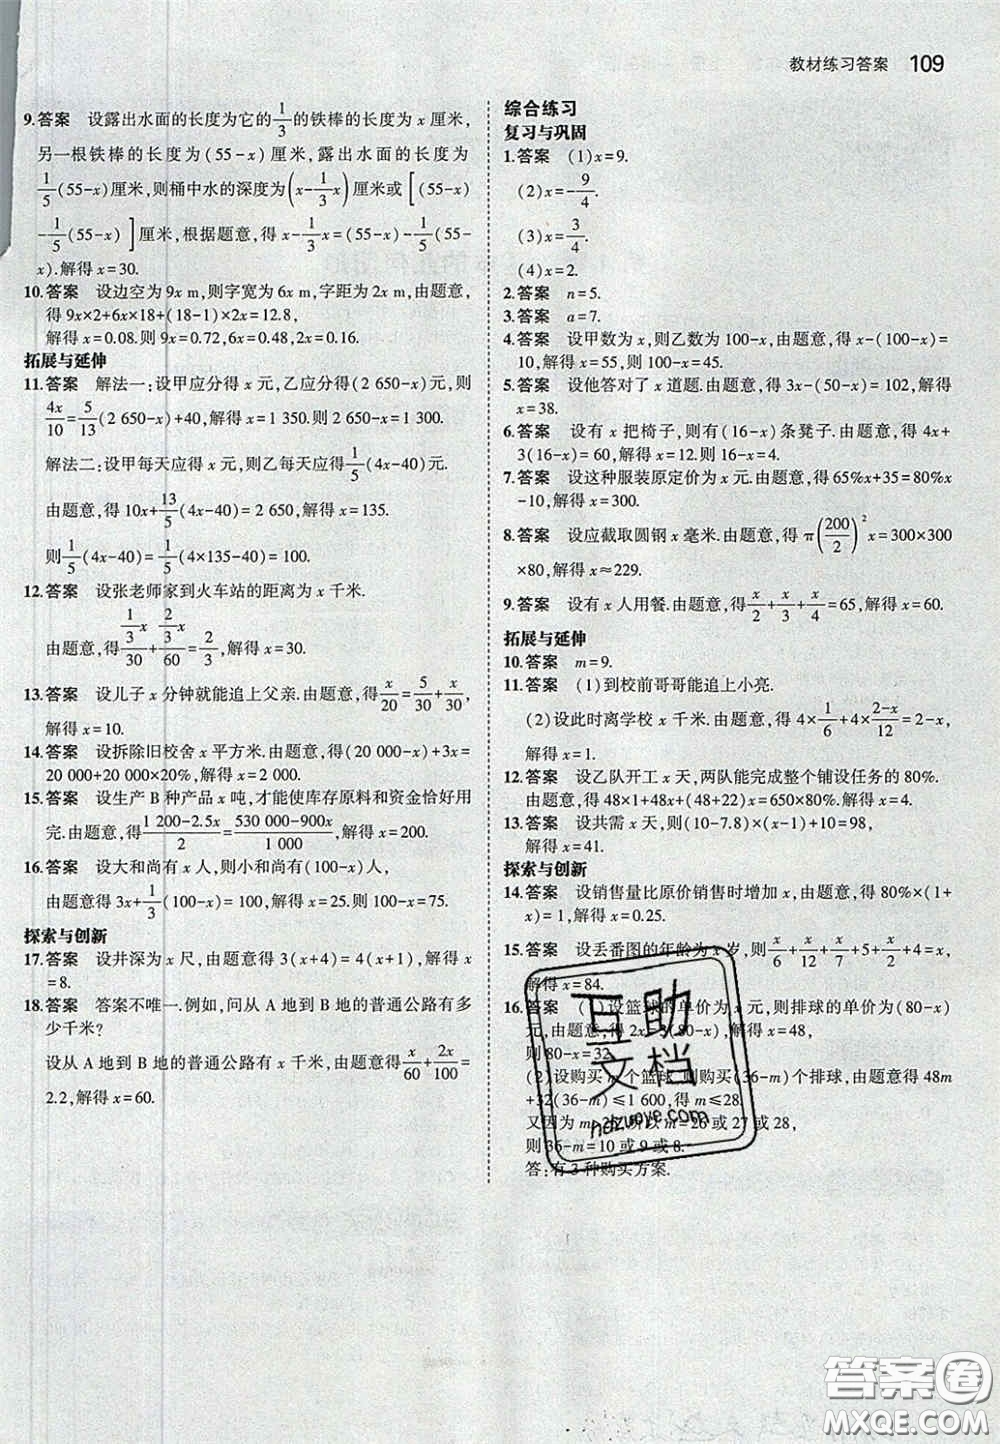 教材练习答案 109
9.答案 设露出水面的长度为它的1/3的铁棒的长度为x厘米,
另一根铁棒的长度为(55-x)厘米,露出水面的长度为
1/5(55-x)厘米,则桶中水的深度为(x-1/3x)厘米或[(55-x)
-1/5(55-x)]厘米,根据题意,得x-1/3x=(55-x)-1/5(55-
x).解得x=30.
10.答案 设边空为9x m,则字宽为6x m,字距为2x m,由题意,
得9x×2+6x×18+(18-1)×2x=12.8,
解得x=0.08.则9x=0.72,6x=0.48,2x=0.16.
拓展与延伸
11.答案 解法一:设甲应分得x元,乙应分得(2 650-x)元,则
4x/10=5/13(2 650-x)+40,解得x=1 350.则2 650-x=1 300.
解法二:设甲每天应得x元,则乙每天应得1/5(4x-40)元.
由题意,得10x+13/5(4x-40)=2 650,解得x=135.
则1/5(4x-40)=1/5(4×135-40)=100.
12.答案 设张老师家到火车站的距离为x千米.
由题意,得(1/3x)/30+(2/3x)/60=2/3,解得x=30.
13.答案 设儿子x分钟就能追上父亲.由题意,得x/20=5/30+x/30,
解得x=10.
14.答案 设拆除旧校舍x平方米.由题意,得(20 000-x)+3x=
20 000+20 000×20%,解得x=2 000.
15.答案 设生产B种产品x吨,才能使库存原料和资金恰好用
完.由题意,得(1 200-2.5x)/2=(530 000-900x)/1 000,解得x=200.
16.答案 设大和尚有x人,则小和尚有(100-x)人,
由题意,得3x+1/3(100-x)=100,解得x=25.则100-x=75.
探索与创新
17.答案 设井深为x尺,由题意得3(x+4)=4(x+1),解得x
=8.
18.答案 答案不唯一.例如,问从A地到B地的普通公路有多
少千米?
设从A地到B地的普通公路有x千米,由题意得x/60+2x/100=
2.2,解得x=60.
综合练习
复习与巩固
1.答案 (1)x=9.
(2)x=-9/4.
(3)x=3/4.
(4)x=2.
2.答案 n=5.
3.答案 a=7.
4.答案 设甲数为x,则乙数为100-x,由题意,得x-(100-x)=
10,解得x=55,则100-x=45.
5.答案 设他答对了x道题.由题意,得3x-(50-x)=102,解得
x=38.
6.答案 设有x把椅子,则有(16-x)条凳子.由题意,得4x+
3(16-x)=60,解得x=12.则16-x=4.
7.答案 设这种服装原定价为x元.由题意,得65%x+35=80%
x-10,解得x=300.
8.答案 设应截取圆钢x毫米.由题意,得π(200/2)²x=300×300
×80,解得x≈229.
9.答案 设有x人用餐.由题意,得x/2+x/3+x/4=65,解得x=60.
拓展与延伸
10.答案 m=9.
11.答案 (1)到校前哥哥能追上小亮.
(2)设此时离学校x千米.由题意,得4×1/6+4×(2-x)/12=2-x,
解得x=1.
12.答案 设乙队开工x天,两队能完成整个铺设任务的80%.
由题意,得48×1+48x+(48+22)x=650×80%,解得x=4.
13.答案 设共需x天,则(10-7.8)×(x-1)+10=98,
解得x=41.
探索与创新
14.答案 设销售量比原价销售时增加x,由题意,得80%×(1+
x)=1,解得x=0.25.
15.答案 设丢番图的年龄为x岁,则x/6+x/12+x/7+5+x/2+4=x,
解得x=84.
16.答案 (1)设篮球的单价为x元,则排球的单价为(80-x)
元.由题意,得2x=3(80-x),解得x=48,
则80-x=32.
(2)设购买m个篮球,则购买(36-m)个排球,由题意得48m
+32(36-m)≤1 600,得m≤28.
又因为m>25,所以m=26或27或28,
则36-m=10或9或8.
答:有3种购买方案.
互助
文档
hdzuoye.com
答案圈
MXQE.COM